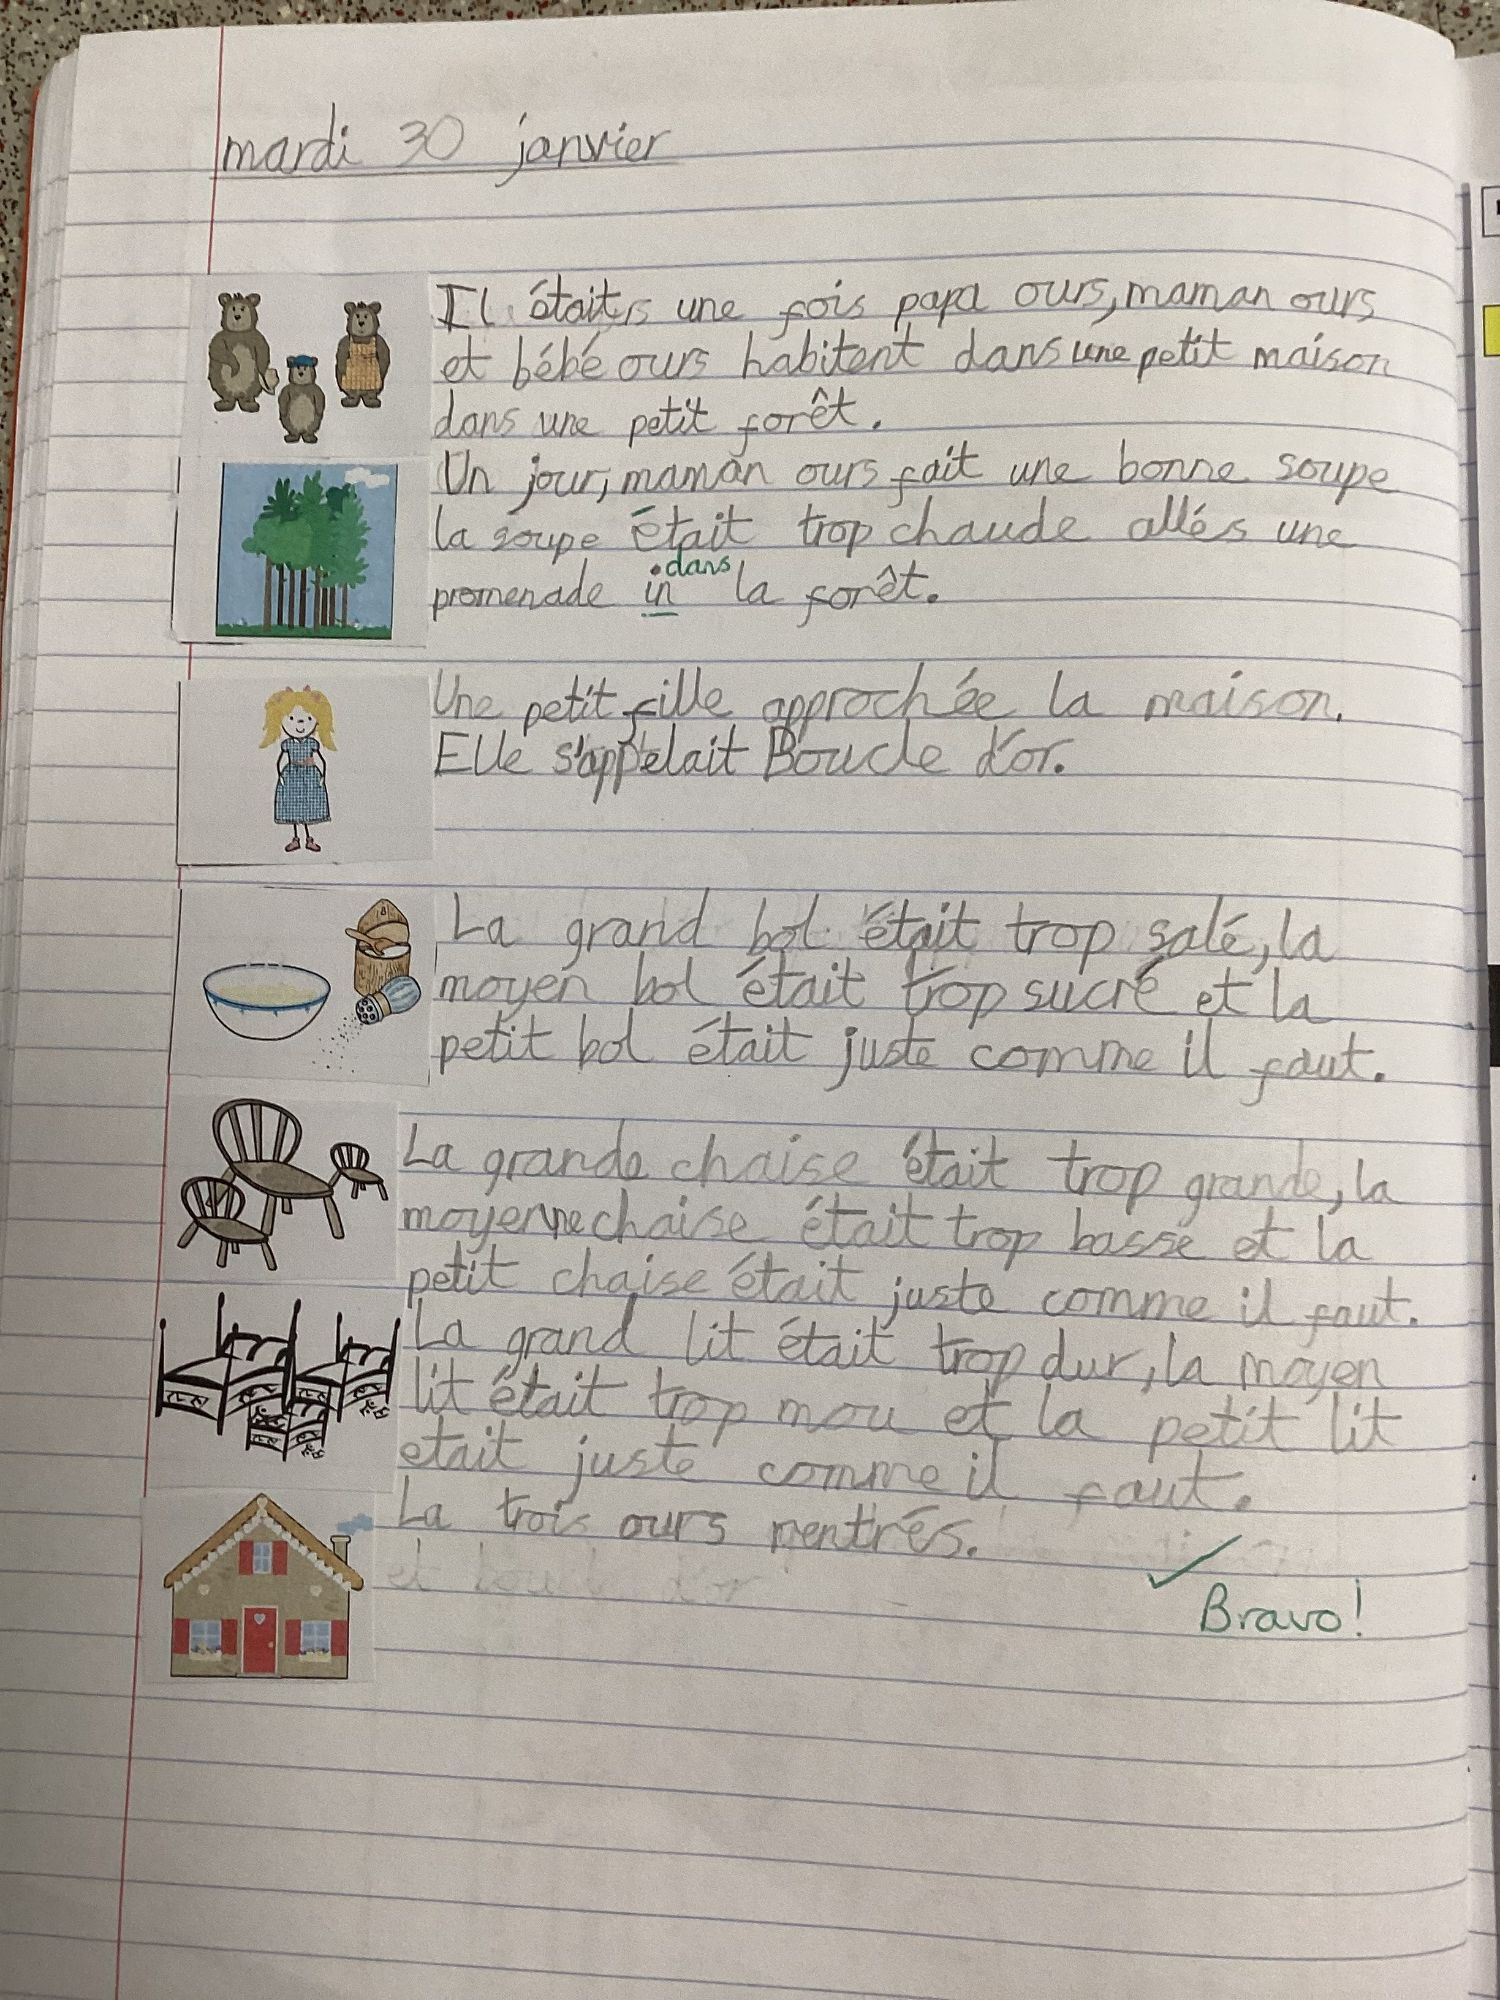 mardi 30 janvier
Il était une fois papa ours, maman ours
et bébé ours habitent dans une petit maison
dans une petit forêt.
Un jour, maman ours fait une bonne soupe
la soupe était trop chaude allés une
dans
promenade in la forêt.
Une petit fille approchée la maison.
Elle s'appelait Boucle d'or.
La grand bol était trop salé, la
moyen bol était trop sucré et la
petit bol était juste comme il faut.
La grande chaise était trop grande, la
moyenne chaise était trop basse et la
petit chaise était juste comme il faut.
La grand lit était trop dur, la moyen
lit était trop mou et la petit lit
etait juste comme il faut.
La trois ours rentrés.
et d'or
Bravo!